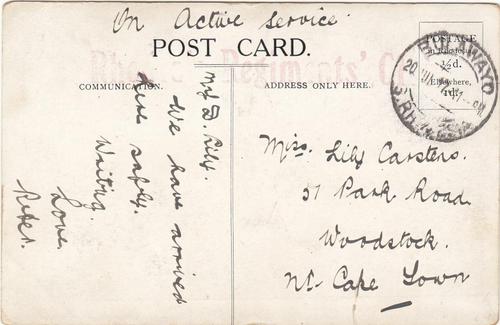 On Active Service.
POST CARD.
Rhodesia Regiments'
COMMUNICATION.
ADDRESS ONLY HERE.
POSTAGE
in Rhodesia
½d.
Elsewhere,
1d.
BULAWAYO
20 JUN
S. RHODESIA
My D. Lily.
We have arrived
here safely.
Writing.
Love.
Peter.
Miss. Lily Carstens.
51 Park Road.
Woodstock.
Nr. Cape Town